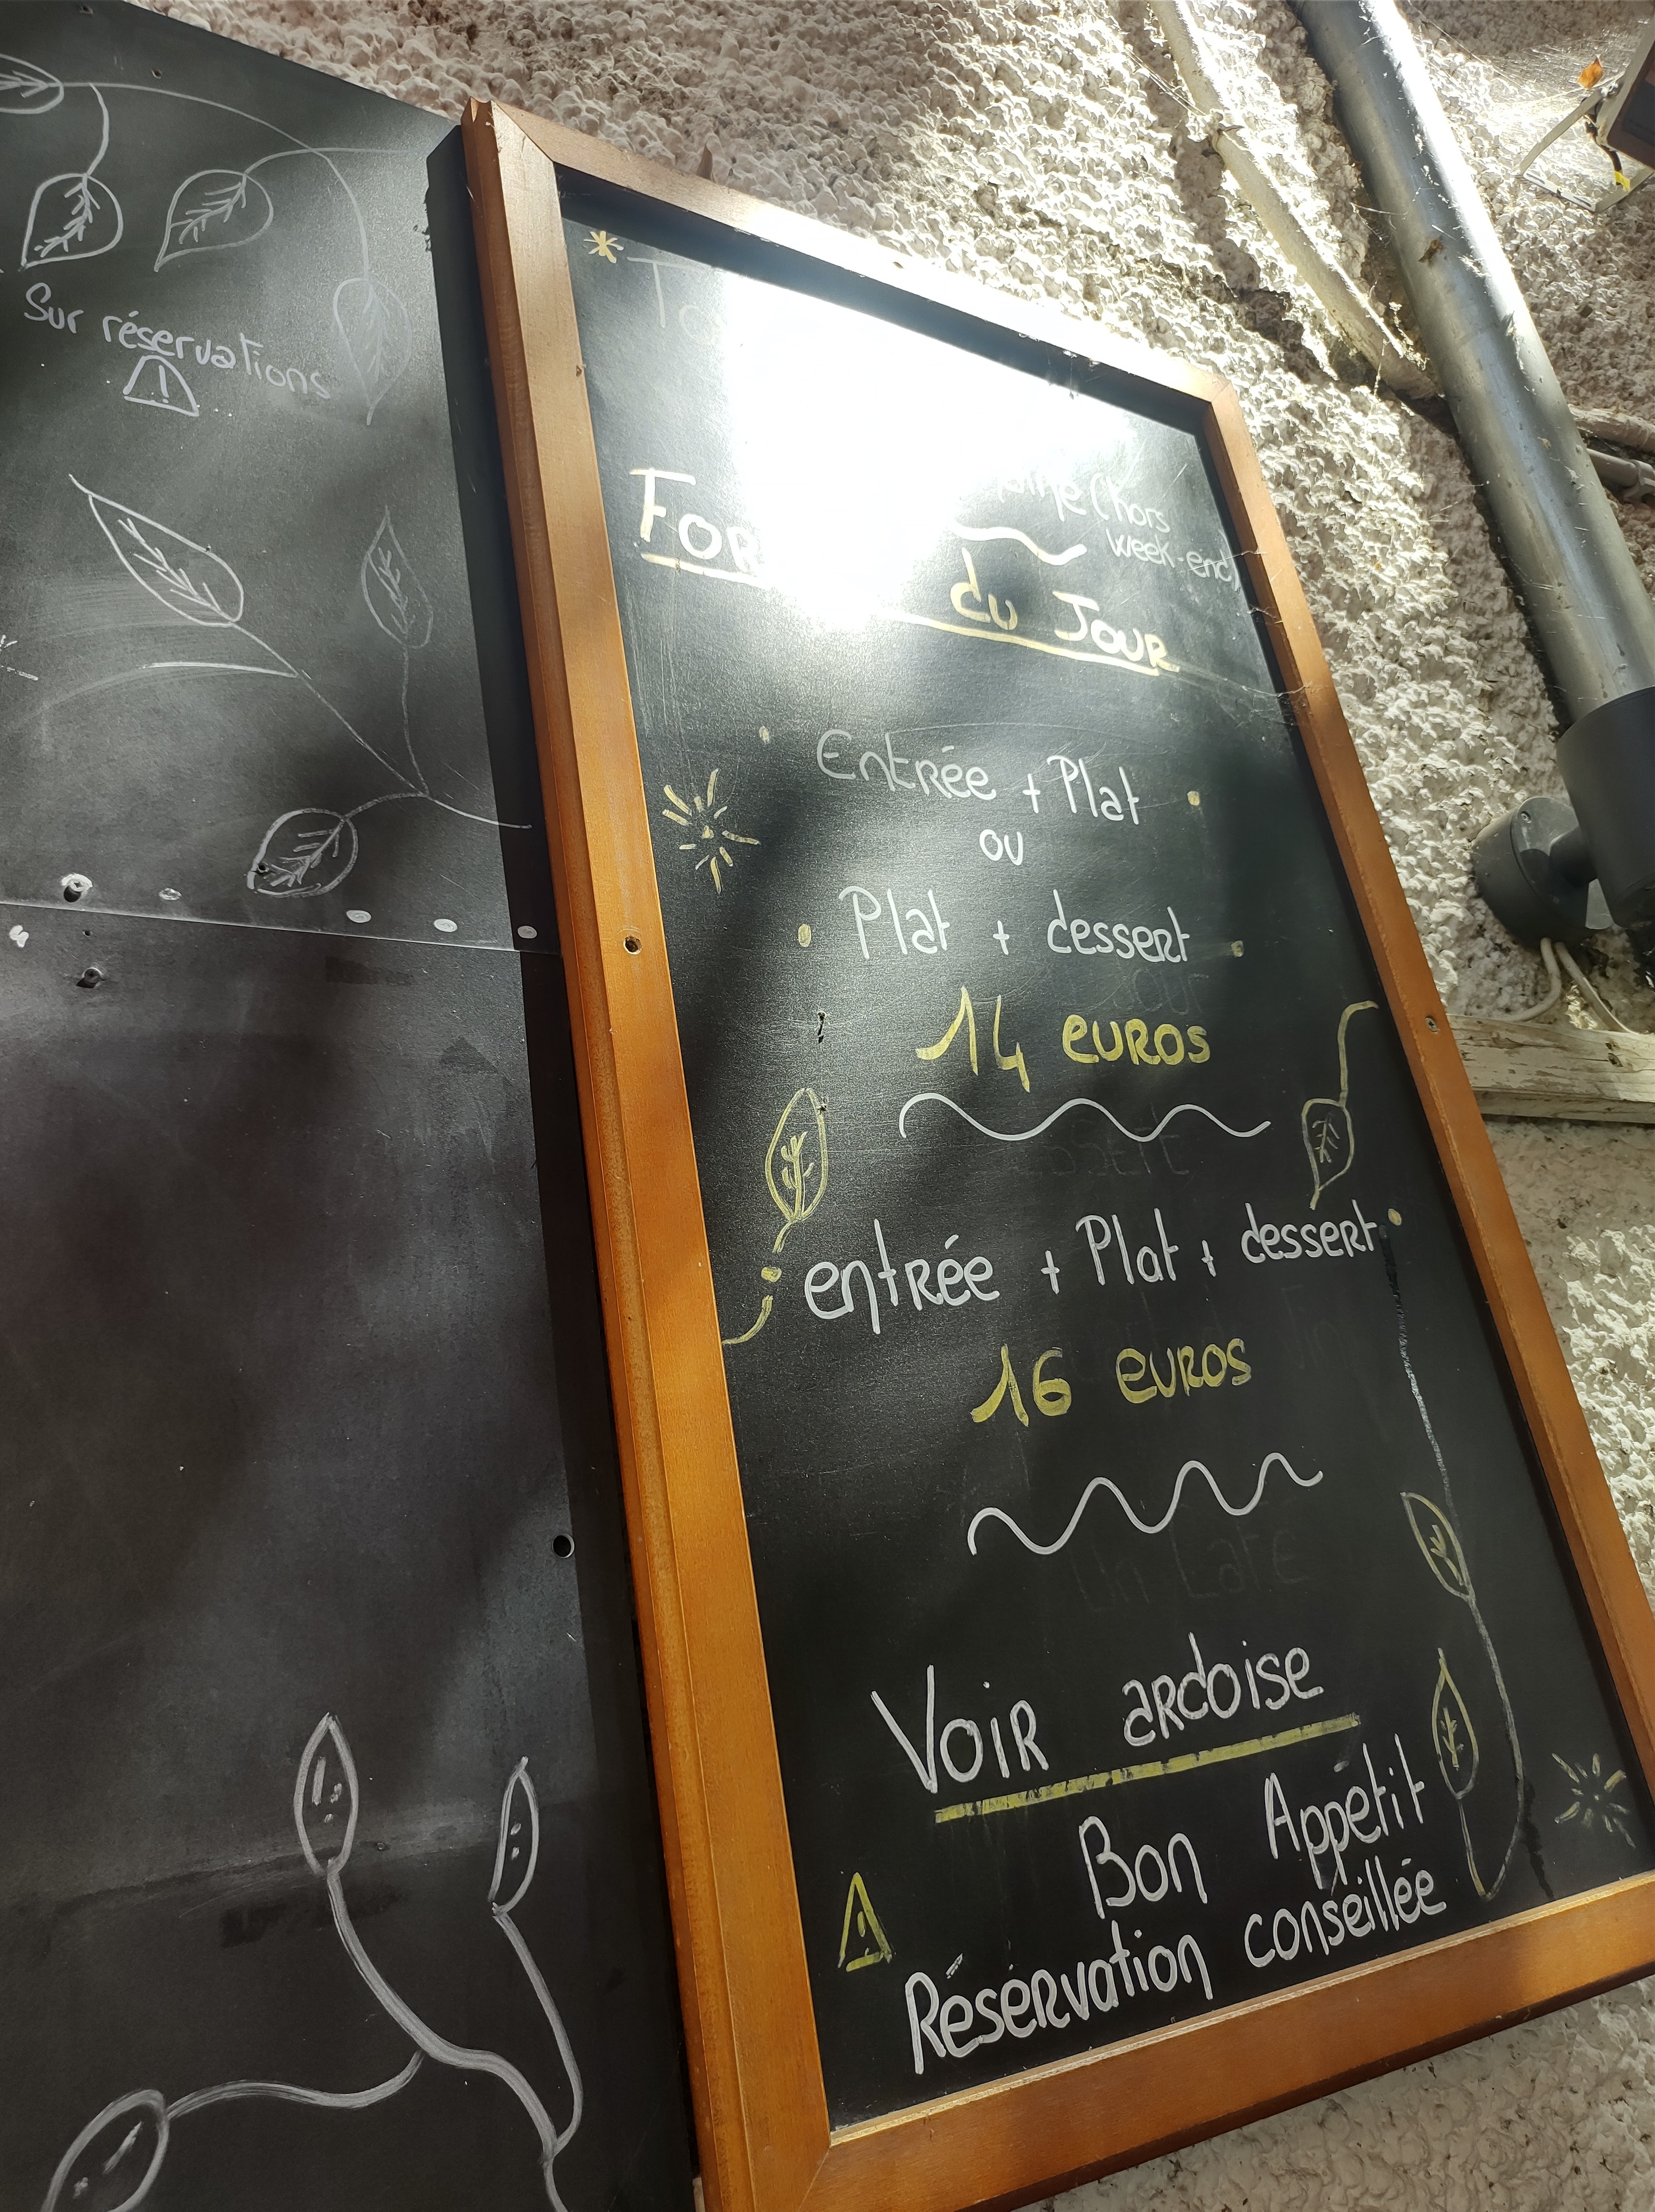 Sur réservations
(hors
week-end)
du JOUR
Entrée + Plat
ou
Plat + dessert
14 euros
entrée + Plat + dessert
16 euros
Voir ardoise
Bon Appétit
Réservation conseillée